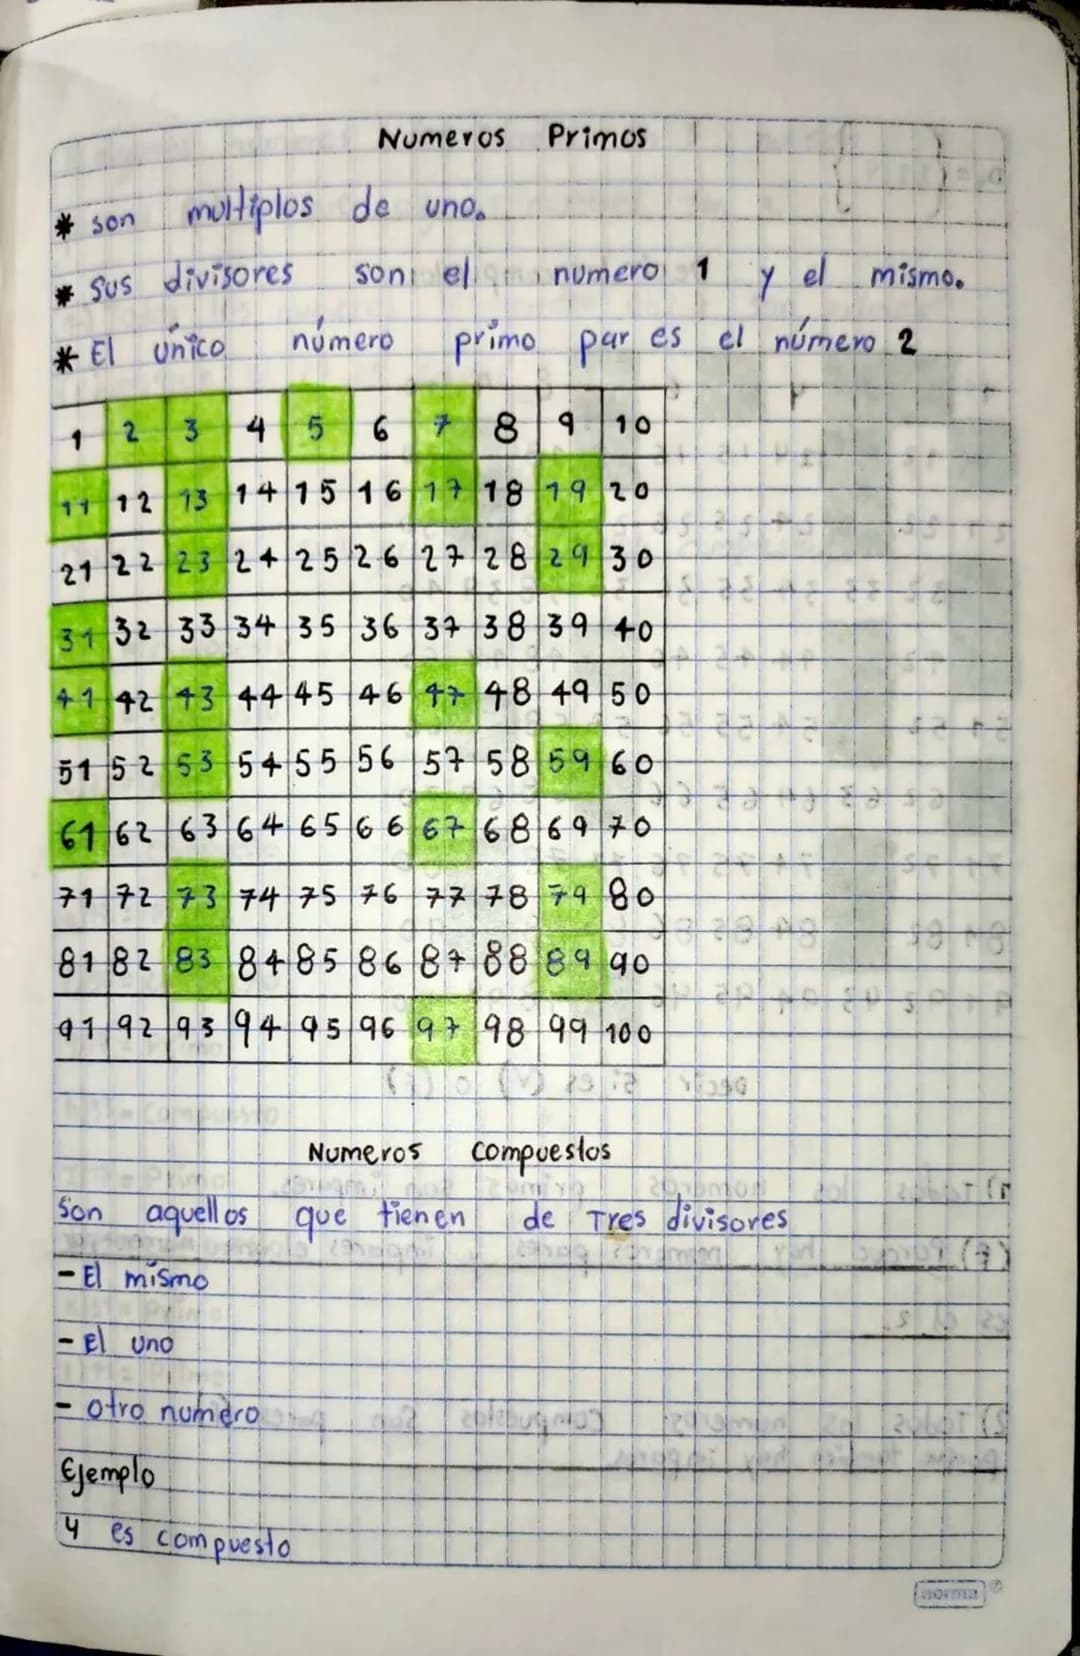 Numeros Primos
* son multiplos de uno.
* Sus divisores son el numero 1 y el mismo.
* El único número primo par es el número 2
1 2 3 4 5 6 7 8 9 10
11 12 13 14 15 16 17 18 19 20
21 22 23 24 25 26 27 28 29 30
31 32 33 34 35 36 37 38 39 40
41 42 43 44 45 46 47 48 49 50
51 52 53 54 55 56 57 58 59 60
61 62 63 64 65 66 67 68 69 70
71 72 73 74 75 76 77 78 79 80
81 82 83 84 85 86 87 88 89 90
91 92 93 94 95 96 97 98 99 100
Numeros Compuestos
Son aquellos que tienen de Tres divisores
- El mismo
- El uno
- otro numero
Ejemplo
4 es compuesto
norma